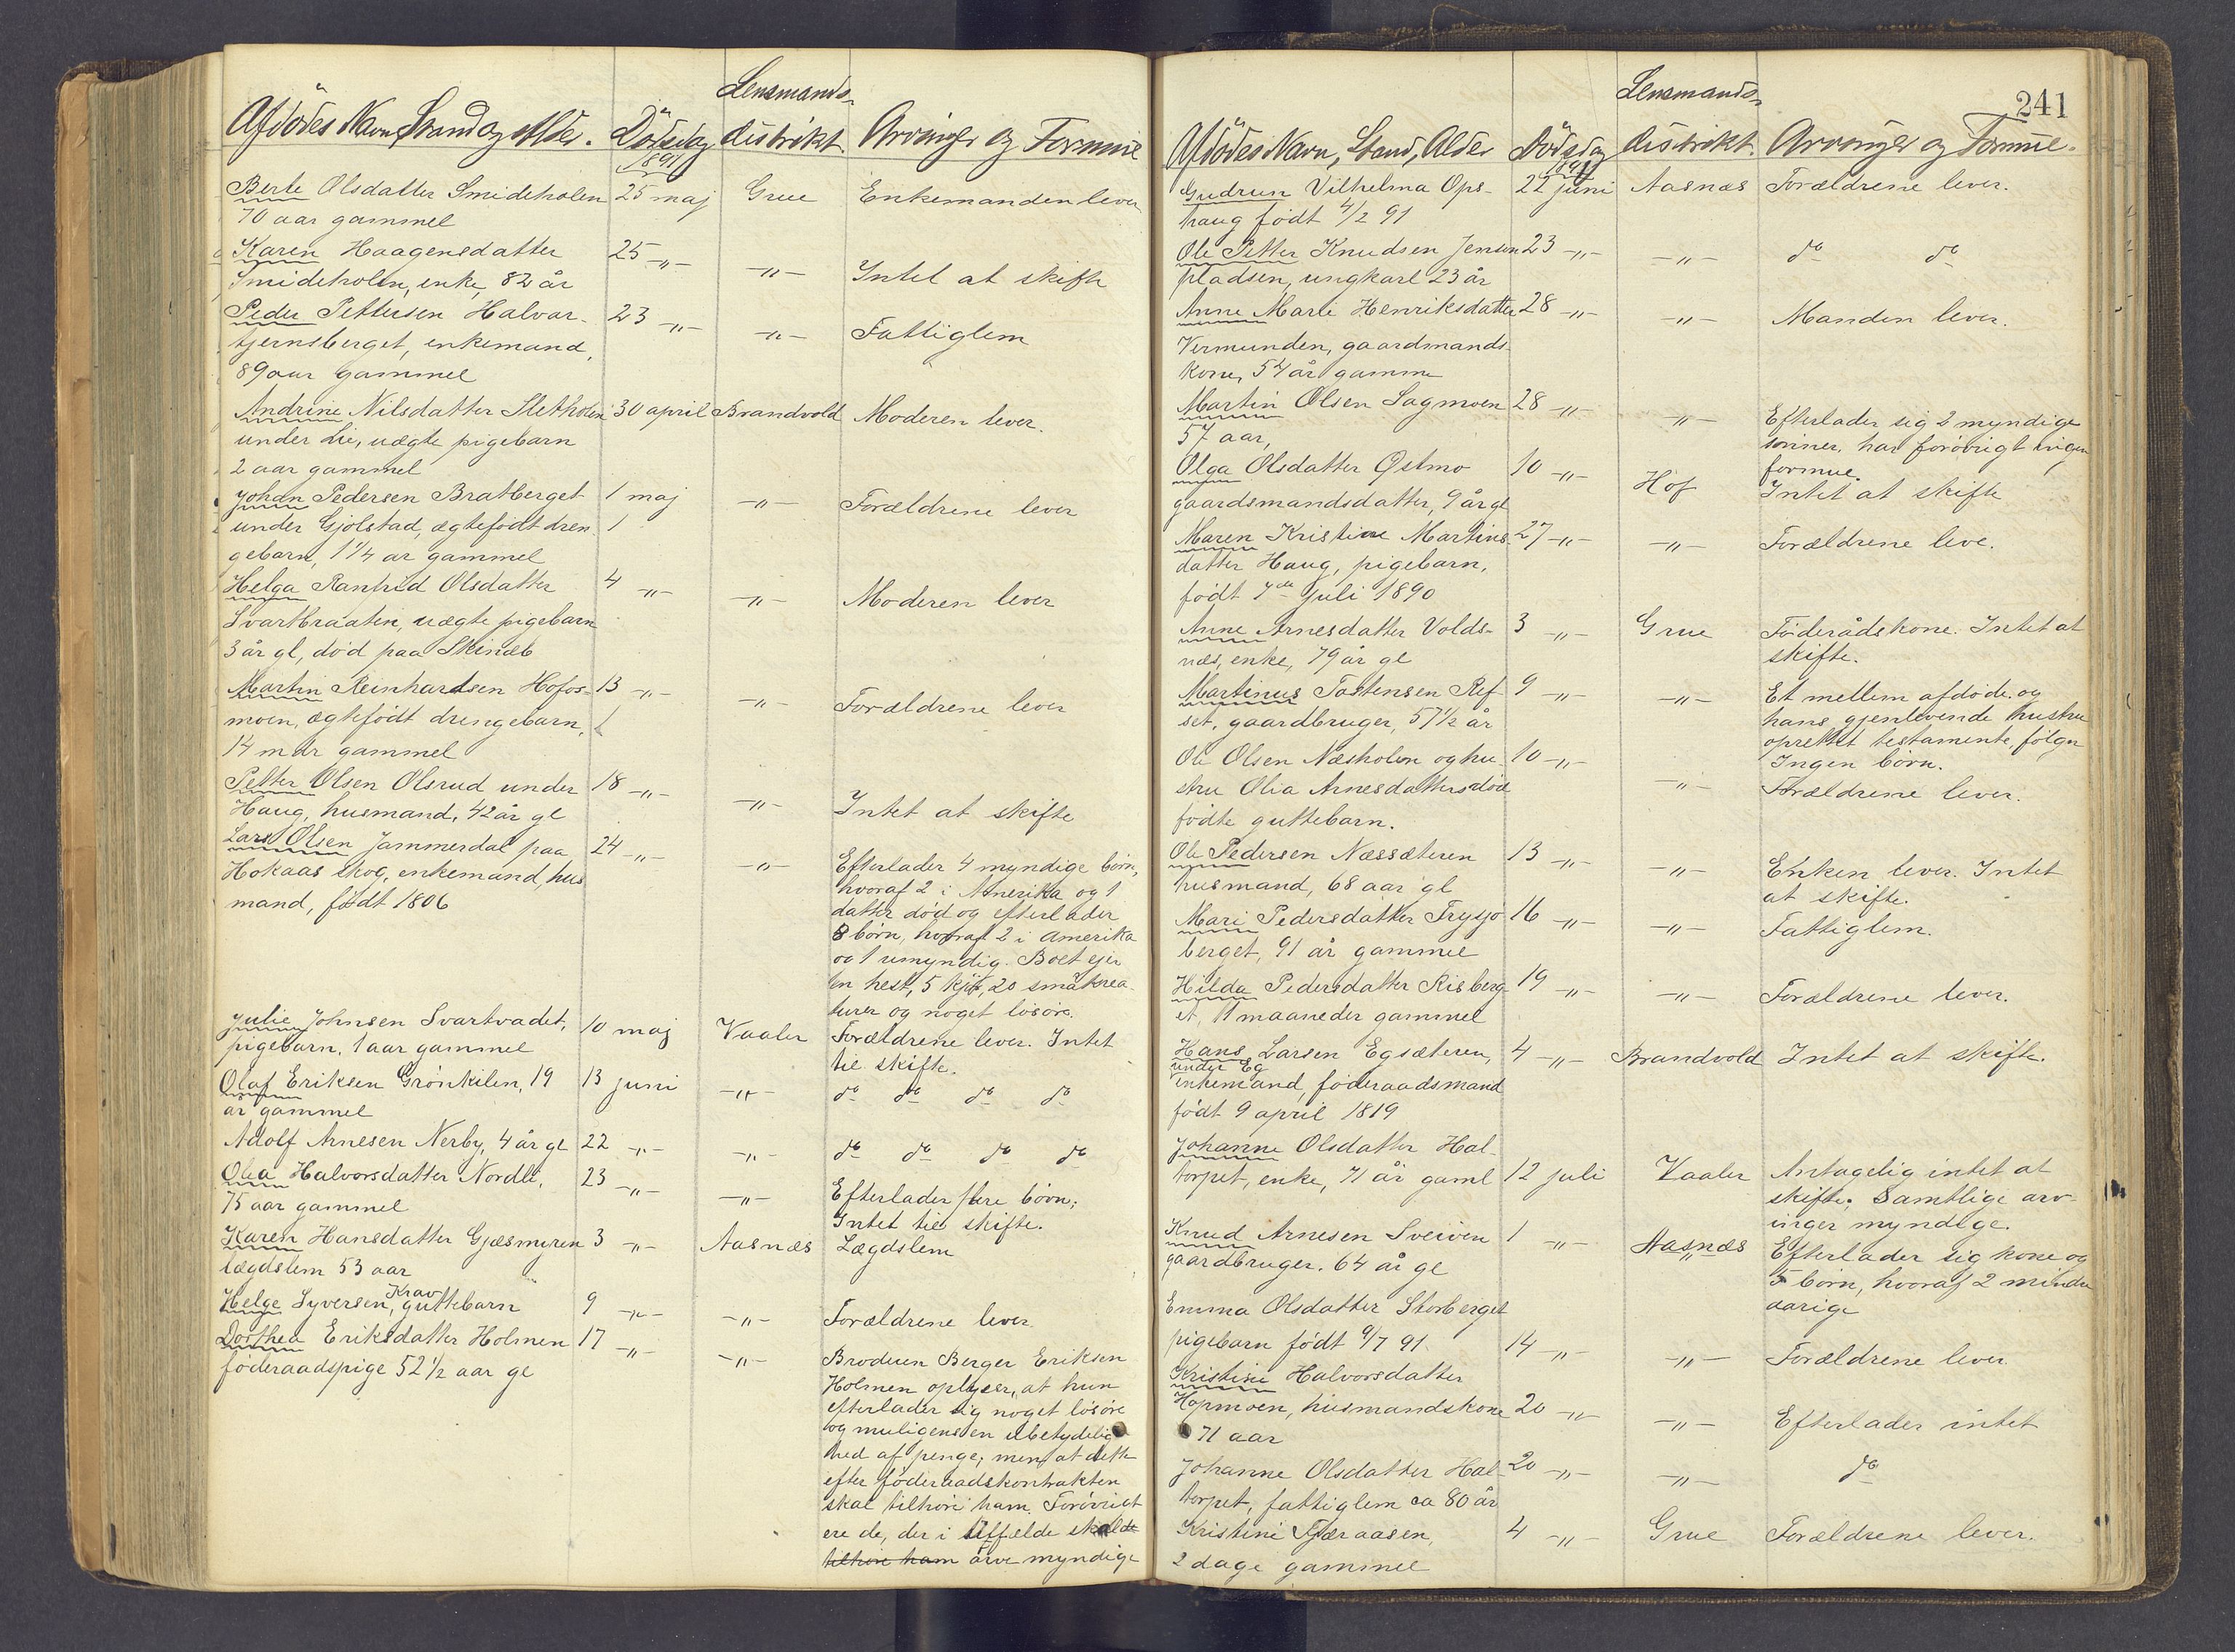 Lensmands-
Afdödes Navn, Stand og Alder. Dödsdag distrikt. Arvinger og Formue
1891
Berte Olsdatter Smideholen 25 maj Grue Enkemanden lever
70 aar gammel
Karen Haagensdatter 25 -"- -"- Intet at skifte
Smideholen, enke, 82 år
Peder Pettersen Halvar- 23 -"- -"- Fattiglem
tjernsberget, enkemand,
89 aar gammel
Andrine Nilsdatter Sletholen 30 april Brandvold Moderen lever.
under Lie, uægte pigebarn
2 aar gammel
Johan Pedersen Bratberget 1 maj -"- Forældrene lever
under Gjölstad, ægtefödt dren- 1
gebarn, 1 1/4 ar gammel
Helga Ranfrid Olsdatter 4 -"- -"- Moderen lever
Svartbraaten, uægte pigebarn
3 år gl, död paa Skinæb
Martin Reinhardsen Hofos- 13 -"- -"- Forældrene lever
moen, ægtefödt drengebarn,
14 mdr gammel
Petter Olsen Olsrud under 18 -"- -"- Intet at skifte
Haug, husmand, 42 år gl
Lars Olsen Jammerdal paa 24 -"- -"- Efterlader 4 myndige börn,
Hokaas skog, enkemand, hus hvoraf 2 i Amerika og 1
mand, födt 1806 datter död og efterlader
8 börn, hvoraf 2 i Amerika
og 1 umyndig. Boet ejer
en hest, 5 kjör, 20 småkrea-
turer og noget lösöre.
Julie Johnsen Svartvadet, 10 maj Vaaler Forældrene lever. Intet
pigebarn, 1 aar gammel til skifte.
Olaf Eriksen Grönkilen, 19 13 juni -"- do do do do
år gammel
Adolf Arnesen Nerby, 4 år gl 22 -"- -"- do do do do
Olea Halvorsdatter Nordli, 23 -"- -"- Efterlader flere börn;
75 aar gammel Intet til skifte.
Karen Hansdatter Gjæsmyren 3 -"- Aasnæs Lægdslem
lægdslem 53 aar
Krav
Helge Syversen, guttebarn 9 -"- -"- Forældrene lever
Dorthea Eriksdatter Holmen 17 -"- -"- Broderen Berger Eriksen
föderaadspige 52 1/2 aar gl Holmen oplyser, at hun
efterlader sig noget lösöre
og muligens en ubetydelig
hed af penge, men at dette
efter föderaadskontrakten
skal tilhöre ham. Forövrigt
ere de, der i tilfælde skulde
tilhöre ham arve myndige
241
Lensmands-
Afdödes Navn, Stand, Alder Dödsdag distrikt. Arvinger og Formue.
1891
Gudrun Vilhelma Ops- 22 juni Aasnæs Forældrene lever.
haug födt 4/2 91
Ole Petter Knudsen Jensen 23 -"- -"- do do
pladsen, ungkarl 23 år
Anne Marie Henriksdatter 28 -"- -"- Manden lever.
Vermunden, gaardmands-
kone, 54 år gamme
Martin Olsen Sagmoen 28 -"- -"- Efterlader sig 2 myndige
57 aar, sönner, har forövrigt ingen
formue.
Olga Olsdatter Östmo 10 -"- Hof Intet at skifte
gaardsmandsdatter, 9 år gl
Maren Kristine Martins- 27 -"- -"- Forældrene leve.
datter Haug, pigebarn,
födt 7de Juli 1890
Anne Arnesdatter Volds- 3 -"- Grue Föderådskone. Intet at
næs, enke, 79 år gl skifte.
Martinus Tostensen Ref- 9 -"- -"- Et mellem afdöde og
set, gaardbruger, 57 1/2 år hans gjenlevende hustru
oprettet testamente fölger
Ingen börn.
Ole Olsen Næsholen og hu- 10 -"- -"- Forældrene lever.
stru Olia Arnesdatters död
födte guttebarn.
Ole Pedersen Næssæteren 13 -"- -"- Enken lever. Intet
husmand, 68 aar gl at skifte.
Mari Pedersdatter Frysjö- 16 -"- -"- Fattiglem.
berget, 91 år gammel
Hilda Pedersdatter Risberg- 19 -"- -"- Forældrene lever.
et, 11 maaneder gammel
Hans Larsen Egsæteren, 4 -"- Brandvold Intet at skifte.
under Eg
enkemand, föderaadsmand
födt 9 april 1819
Johanne Olsdatter Hal-
torpet, enke, 71 år gaml 12 juli Vaaler Antagelig intet at
skifte; Samtlige arv-
inger myndige.
Knud Arnesen Sveiven 1 -"- Aasnæs Efterlader sig kone og
gaardbruger. 64 år gl 5 börn, hvoraf 2 minder
aarige
Emma Olsdatter Storberget
pigebarn födt 9/7 91 14 -"- -"- Forældrene lever.
Kristine Halvorsdatter
Hopmoen, husmandskone 20 -"- -"- Efterlader intet
71 aar
Johanne Olsdatter Hal- 20 -"- -"- do
torpet, fattiglem ca 80 år
Kristine Fjæraasen, 4 -"- Grue Forældrene lever.
2 dage gammel